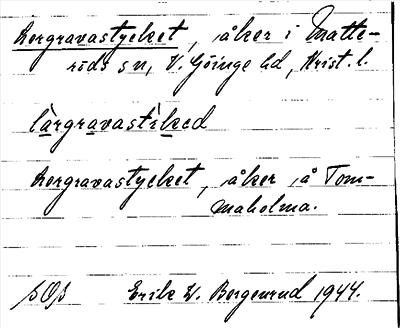 Lergravastycket, åker i Matte-
röds sn, V. Göinge hd, Krist. l.
làrgravastìked
Lergravastycket, åker å Tom-
maholma.
Erik W. Bergenrud 1944.